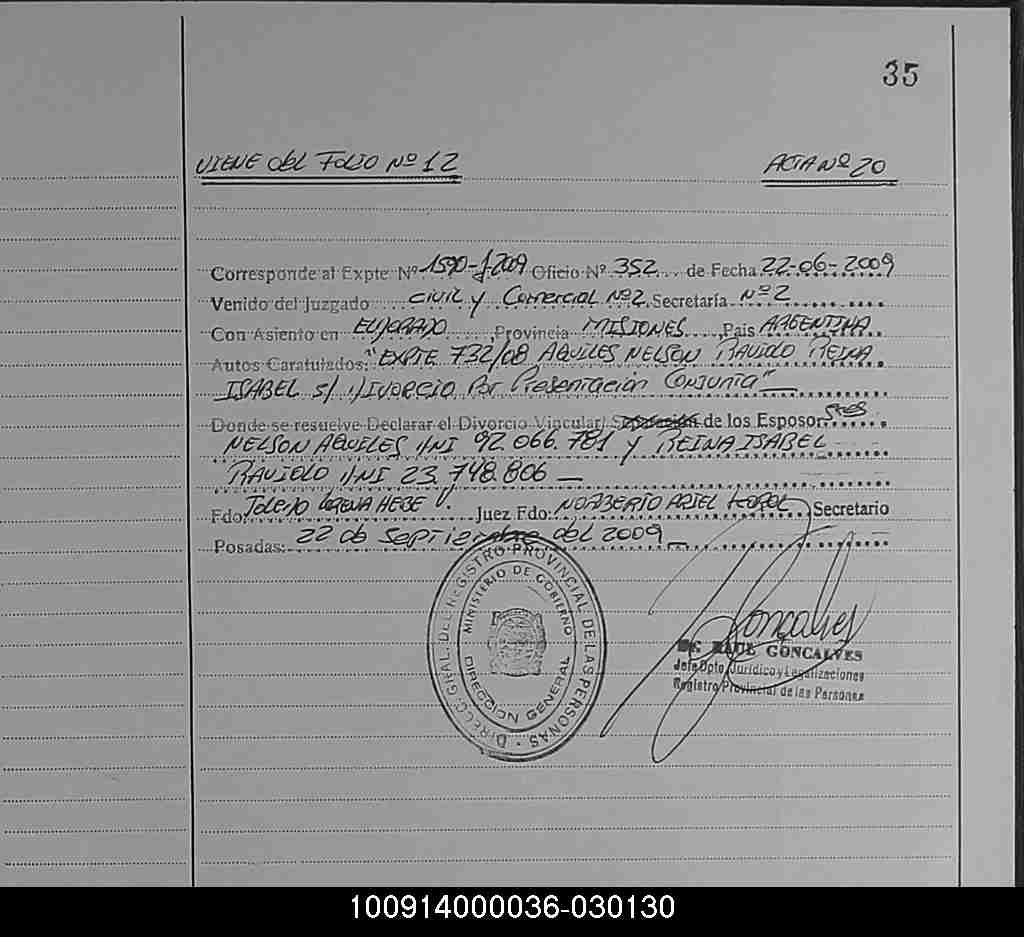 35
VIENE del FOLIO Nº 12 ACTA Nº 20
Corresponde al Expte Nº 1590-J-2009 Oficio Nº 352 de Fecha 22-06-2009
Venido del Juzgado CIVIL y Comercial Nº2 Secretaría Nº 2
Con Asiento en ELDORADO, Provincia MISIONES, País ARGENTINA
Autos Caratulados: "EXPTE 732/08 AQUILES NELSON RAVIOLO REINA
ISABEL S/ DIVORCIO Por Presentación Conjunta"
Donde se resuelve Declarar el Divorcio Vincular/ Separación de los Esposos
NELSON AQUILES DNI 92.066.781 y REINA ISABEL
RAVIOLO DNI 23.748.806
Fdo. Toledo LORENA HEBE Juez Fdo: NORBERTO ARIEL KOROL Secretario
Posadas: 22 de Septiembre del 2009
DIREC. GRAL. DEL REGISTRO PROVINCIAL DE LAS PERSONAS
MINISTERIO DE GOBIERNO
DIRECCION GENERAL
Gonçalves
RAUL GONCALVES
Jefe Dpto Jurídico y Legalizaciones
Registro Provincial de las Personas
100914000036-030130